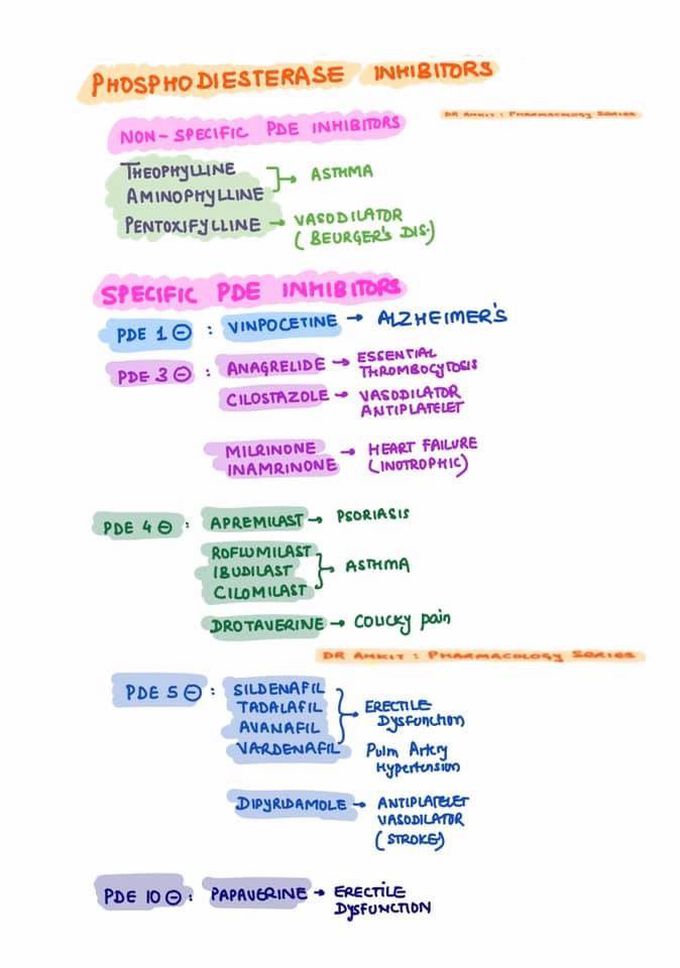 PHOSPHODIESTERASE INHIBITORS
DR ANKIT : PHARMACOLOGY SERIES
NON-SPECIFIC PDE INHIBITORS
THEOPHYLLINE
AMINOPHYLLINE
→ ASTHMA
PENTOXIFYLLINE → VASODILATOR
(BEURGER'S DIS.)
SPECIFIC PDE INHIBITORS
PDE 1 ⊖ : VINPOCETINE → ALZHEIMER'S
PDE 3 ⊖ : ANAGRELIDE → ESSENTIAL
THROMBOCYTOSIS
CILOSTAZOLE → VASODILATOR
ANTIPLATELET
MILRINONE → HEART FAILURE
INAMRINONE (INOTROPHIC)
PDE 4 ⊖ : APREMILAST → PSORIASIS
ROFLUMILAST
IBUDILAST → ASTHMA
CILOMILAST
DROTAVERINE → COLICKY pain
DR ANKIT : PHARMACOLOGY SERIES
PDE 5 ⊖ : SILDENAFIL
TADALAFIL → ERECTILE
AVANAFIL DYSFUNCTION
VARDENAFIL Pulm Artery
Hypertension
DIPYRIDAMOLE → ANTIPLATELET
VASODILATOR
(STROKE)
PDE 10 ⊖ : PAPAVERINE → ERECTILE
DYSFUNCTION